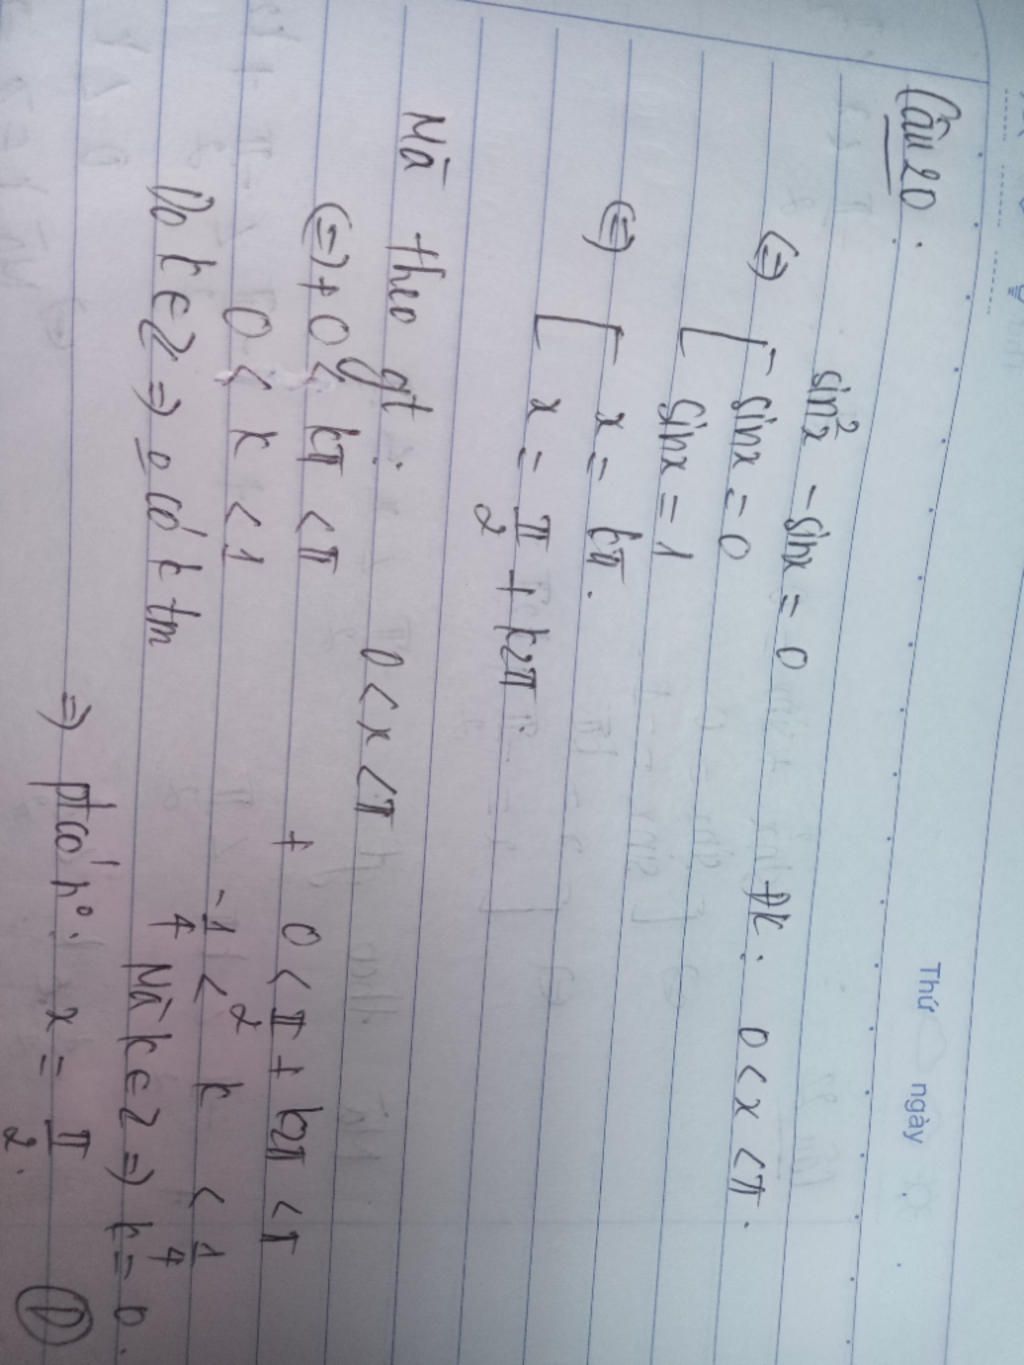 Thứ ngày
Câu 20.
sin²x - sinx = 0 ĐK: 0 < x < π.
(=) [ sinx = 0
sinx = 1
(=) [ x = kπ.
x = π/2 + k2π.
Mà theo gt: 0 < x < π
(=) + 0 < kπ < π + 0 < π/2 + k2π < π
0 < k < 1 -1/4 < k < 1/4
Do k ∈ Z => 0 có k tm Mà k ∈ Z => k = 0.
=> pt có n⁰: x = π/2. (D)